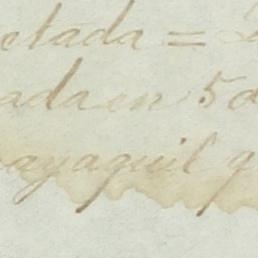 etada =
ada en 5 d
ayaquil q